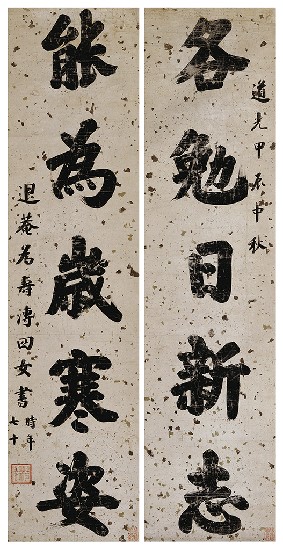 各勉日新志
道光甲辰中秋
能為歲寒姿
退菴為壽溥四女書
時年七十